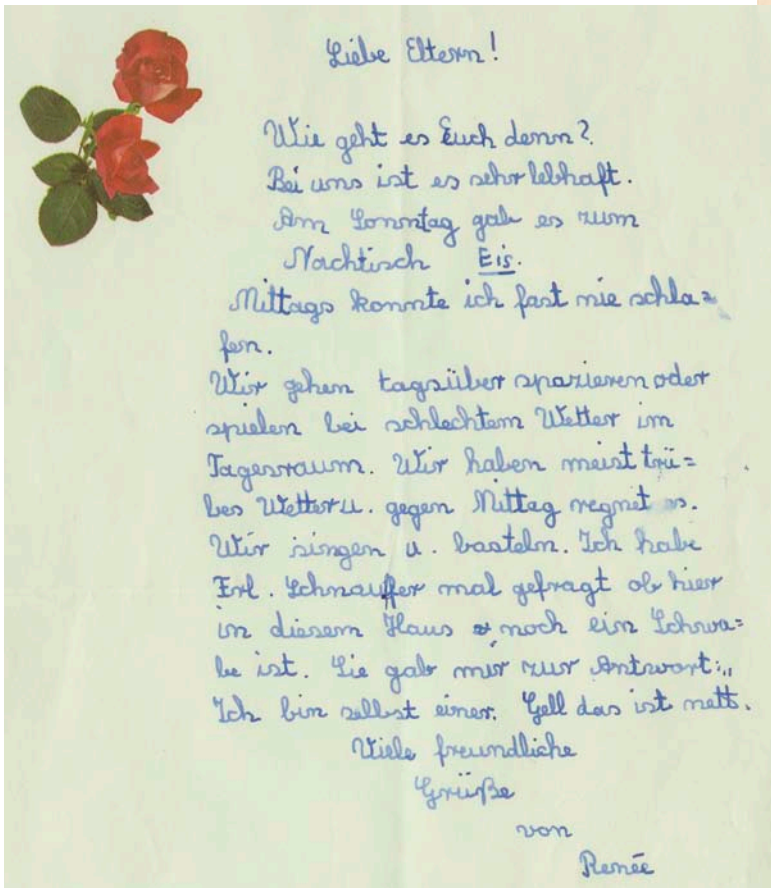 Liebe Eltern!
Wie geht es Euch denn?
Bei uns ist es sehr lebhaft.
Am Sonntag gab es zum
Nachtisch Eis.
Mittags konnte ich fast nie schla=
fen.
Wir gehen tagsüber spazieren oder
spielen bei schlechtem Wetter im
Tagesraum. Wir haben meist trü=
bes Wetter u. gegen Mittag regnet es.
Wir singen u. basteln. Ich habe
Frl. Schnauffer mal gefragt ob hier
in diesem Haus noch ein Schwa=
be ist. Sie gab mir zur Antwort:„
Ich bin selbst einer. Gell das ist nett.
Viele freundliche
Grüße
von
Renée